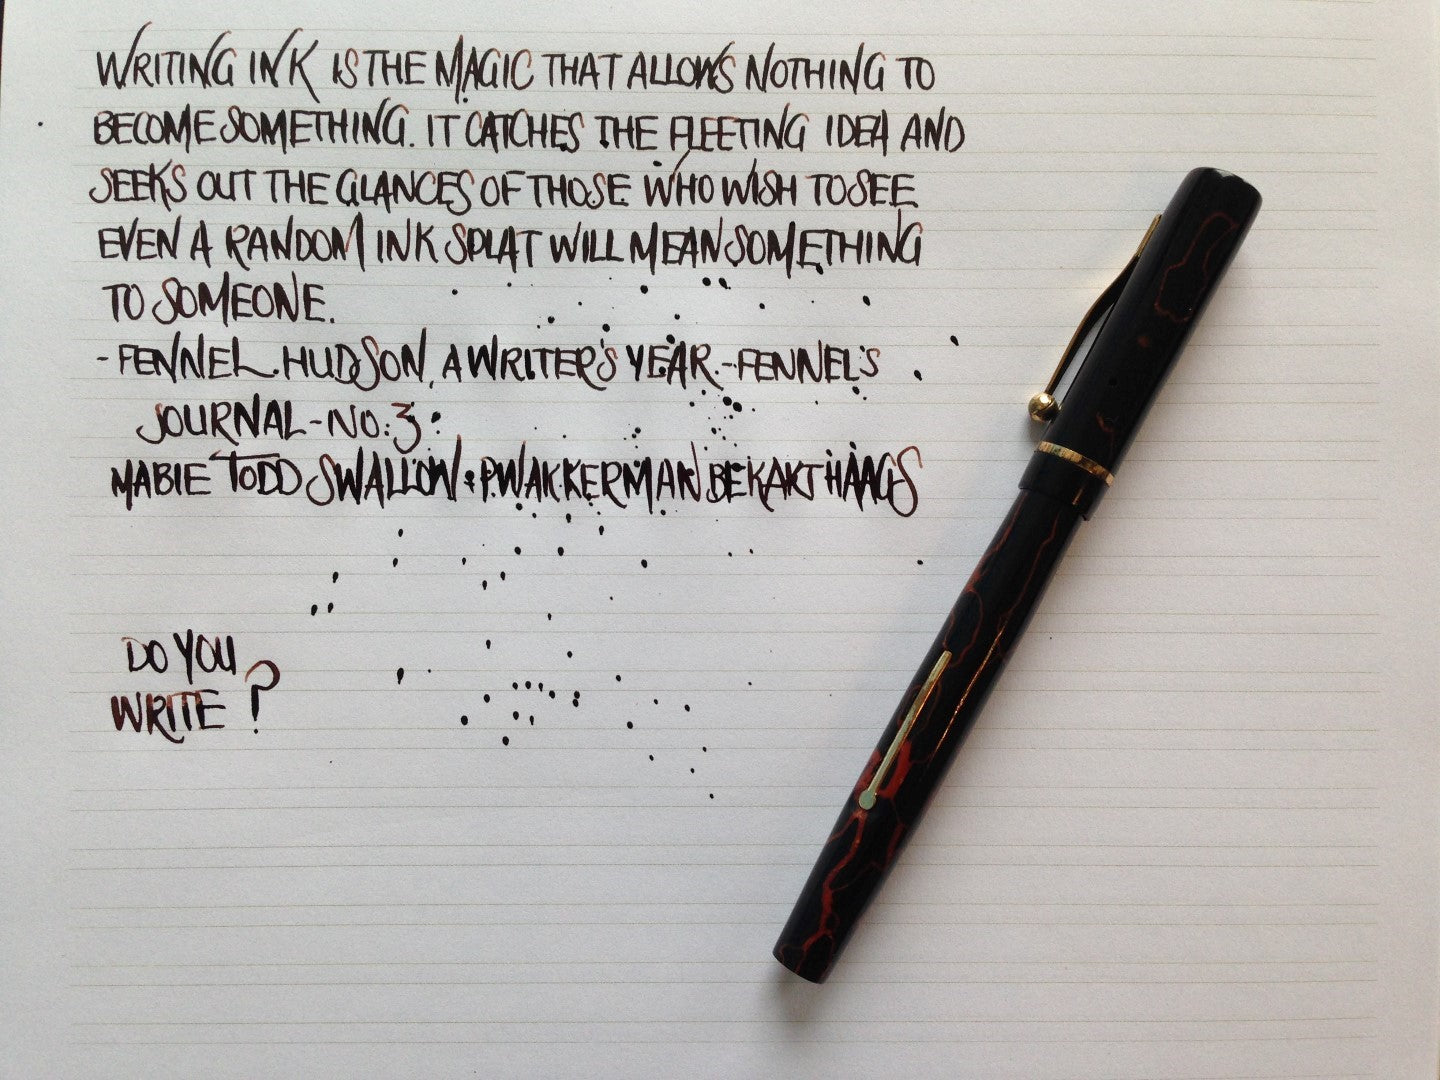 WRITING INK IS THE MAGIC THAT ALLOWS NOTHING TO
BECOME SOMETHING. IT CATCHES THE FLEETING IDEA AND
SEEKS OUT THE GLANCES OF THOSE WHO WISH TO SEE
EVEN A RANDOM INK SPLAT WILL MEAN SOMETHING
TO SOMEONE.
- FENNEL HUDSON, A WRITER'S YEAR. - FENNEL'S
JOURNAL - NO: 3
MABIE TODD SWALLOW + P.W.AKKERMAN BEKAKT HAAGS
DO YOU
WRITE ?